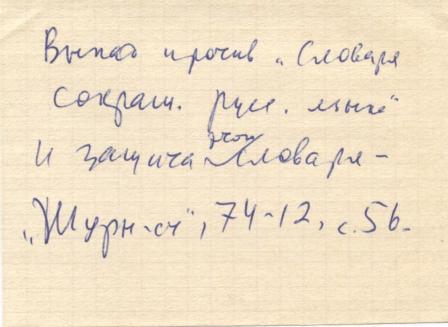 Выпад против „Словаря
сокращ. русск. языка"
и защита этого словаря –
„Журн-ст", 74-12, с. 56.